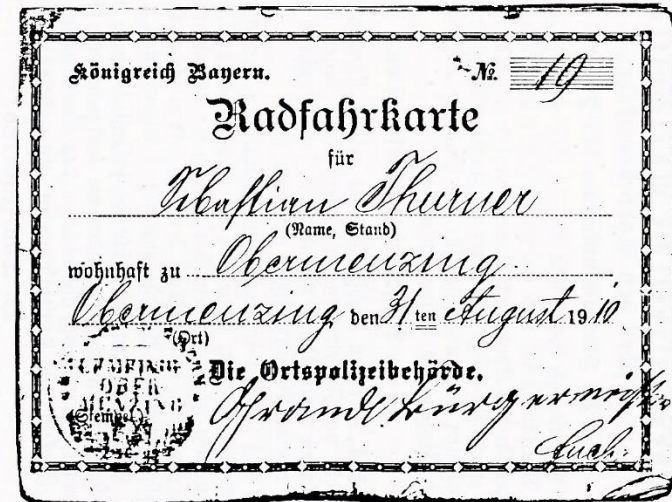 Königreich Bayern. No. 19
Radfahrkarte
für
Sebastian Thurner
(Name, Stand)
wohnhaft zu Obermenzing
Obermenzing den 31 ten August 1910
(Ort)
Die Ortspolizeibehörde.
GEMEINDE
OBER
MENZING
(Stempel)
Bürgermeister